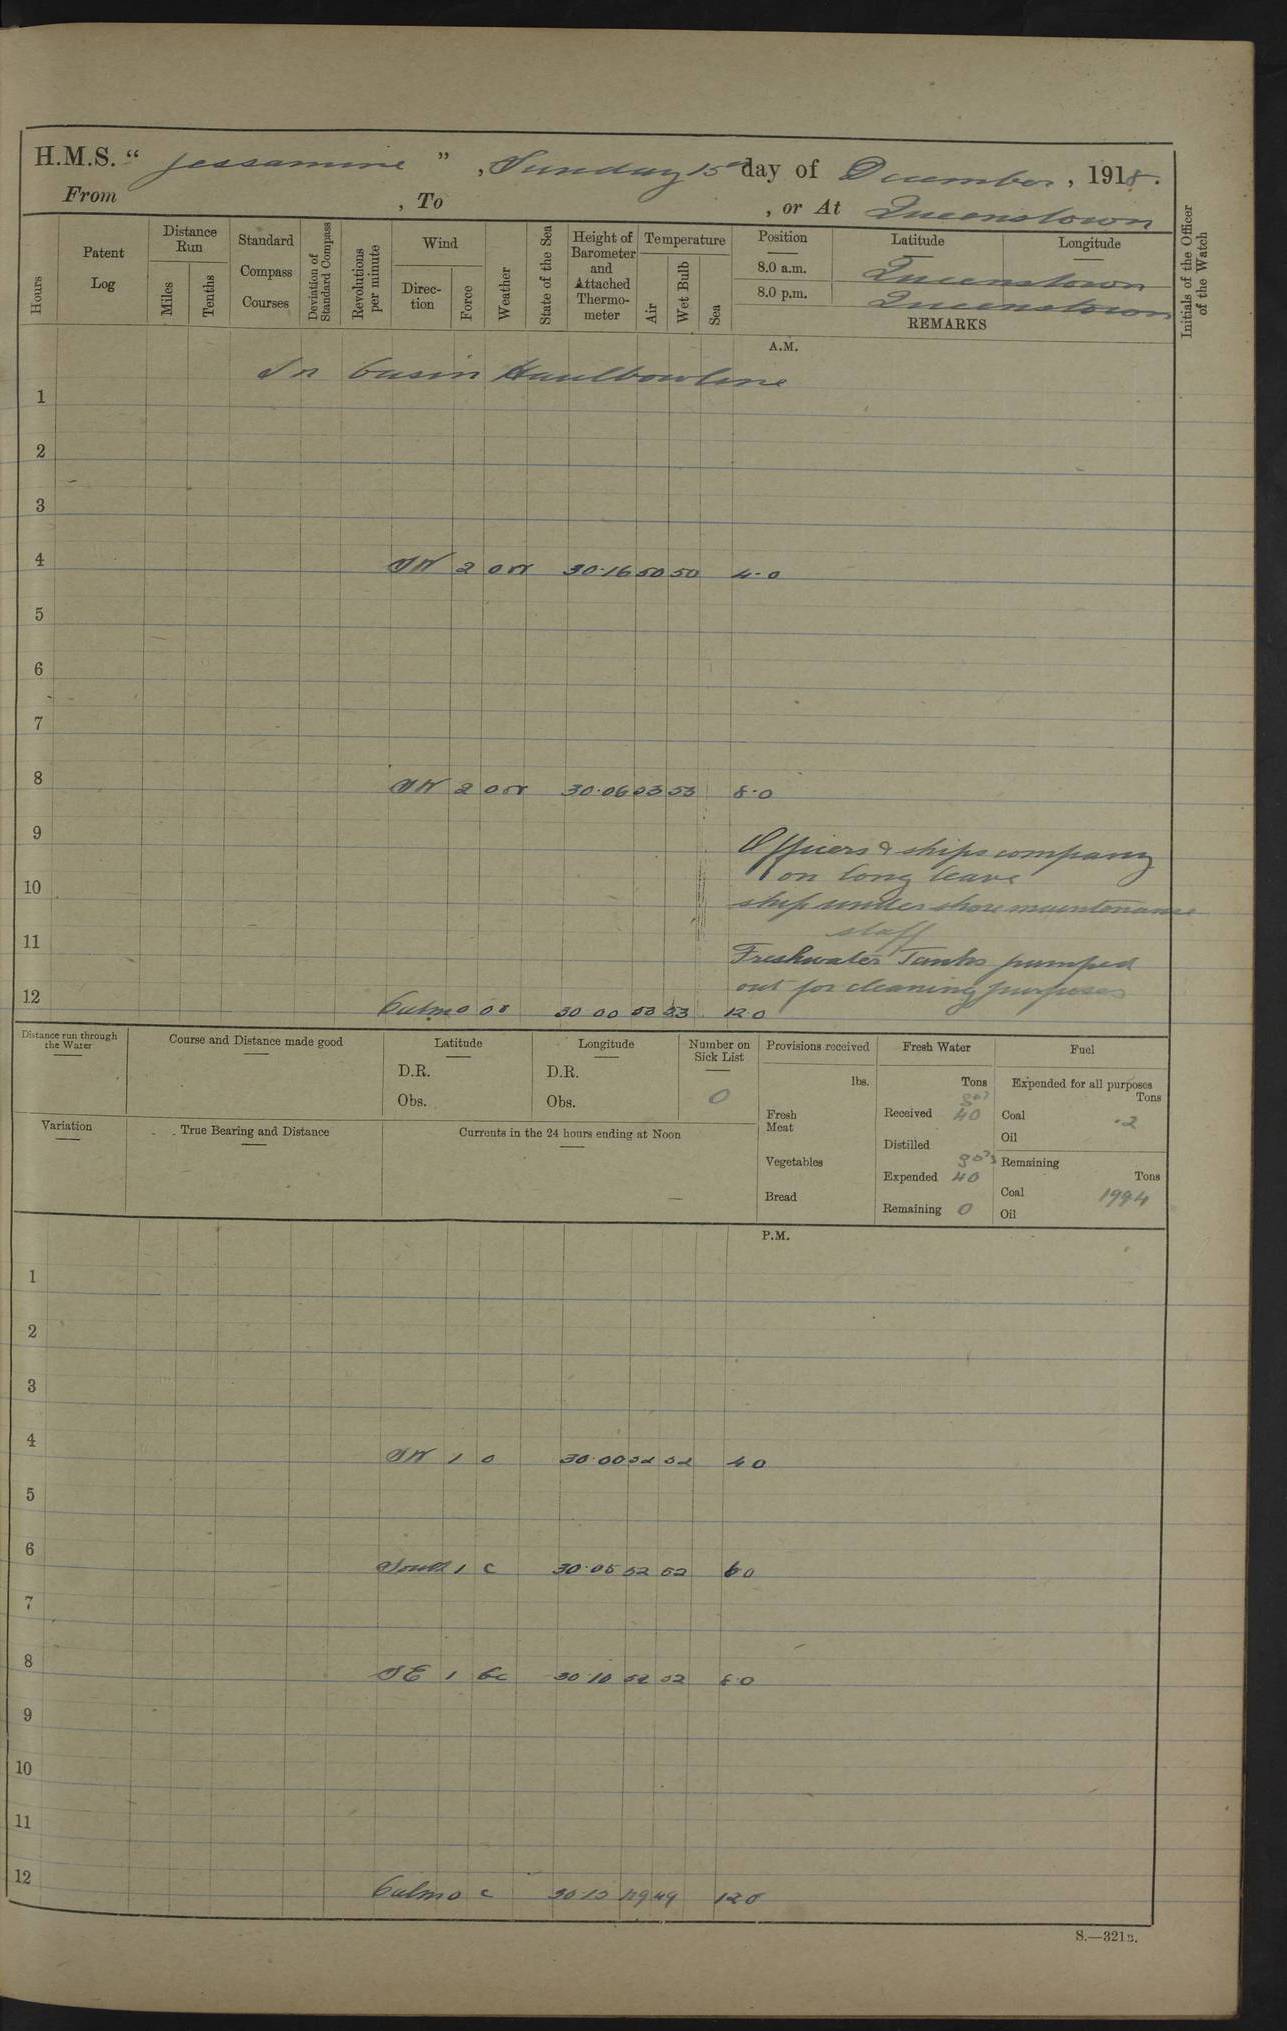 H.M.S. “ Jessamine ” , Sunday 15th day of December , 1918.
From , To , or At Queenstown
Hours
Patent Log
Distance Run
Miles
Tenths
Standard Compass Courses
Deviation of Standard Compass
Revolutions per minute
Wind
Direction
Force
Weather
State of the Sea
Height of Barometer and Attached Thermometer
Temperature
Air
Wet Bulb
Sea
Position
8.0 a.m.
8.0 p.m.
Latitude
Longitude
Queenstown
Queenstown
REMARKS
Initials of the Officer of the Watch
A.M.
In basin Haulbowline
1
2
3
4 SW 2 or 30.16 50 50 4.0
5
6
7
8 SW 2 or 30.06 53 53 8.0
9 Officers & ships company
on long leave
10
ship under shore maintenance
staff
11
Freshwater Tanks pumped
out for cleaning purposes
12 Calm 0 or 30 00 53 53 12 0
Distance run through the Water
Course and Distance made good
Latitude
D.R.
Obs.
Longitude
D.R.
Obs.
Number on Sick List
0
Provisions received
lbs.
Fresh Meat
Vegetables
Bread
Fresh Water
Tons
Received 40
Distilled
Expended 40
Remaining 0
Fuel
Expended for all purposes
Tons
Coal .2
Oil
Remaining
Tons
Coal 199.4
Oil
Variation
True Bearing and Distance
Currents in the 24 hours ending at Noon
P.M.
1
2
3
4 SW 1 o 30.00 52 52 4 0
5
6 South 1 c 30.05 52 52 6 0
7
8 SE 1 bc 30 10 52 52 8.0
9
10
11
12 Calm 0 c 30 15 49 49 12 0
S.—321B.